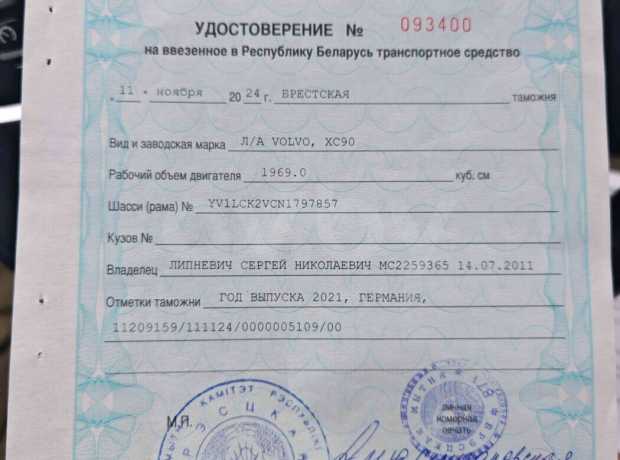 УДОСТОВЕРЕНИЕ № 093400
на ввезенное в Республику Беларусь транспортное средство
„ 11 " ноября 2024 г. БРЕСТСКАЯ таможня
Вид и заводская марка Л/А VOLVO, XC90
Рабочий объем двигателя 1969.0 куб. см
Шасси (рама) № YV1LCK2VCN1797857
Кузов №
Владелец ЛИПНЕВИЧ СЕРГЕЙ НИКОЛАЕВИЧ МС2259365 14.07.2011
Отметки таможни ГОД ВЫПУСКА 2021, ГЕРМАНИЯ,
11209159/111124/0000005109/00
М.П.
КАМІТЭТ РЭСПУБЛІКІ
личная
номерная
печать